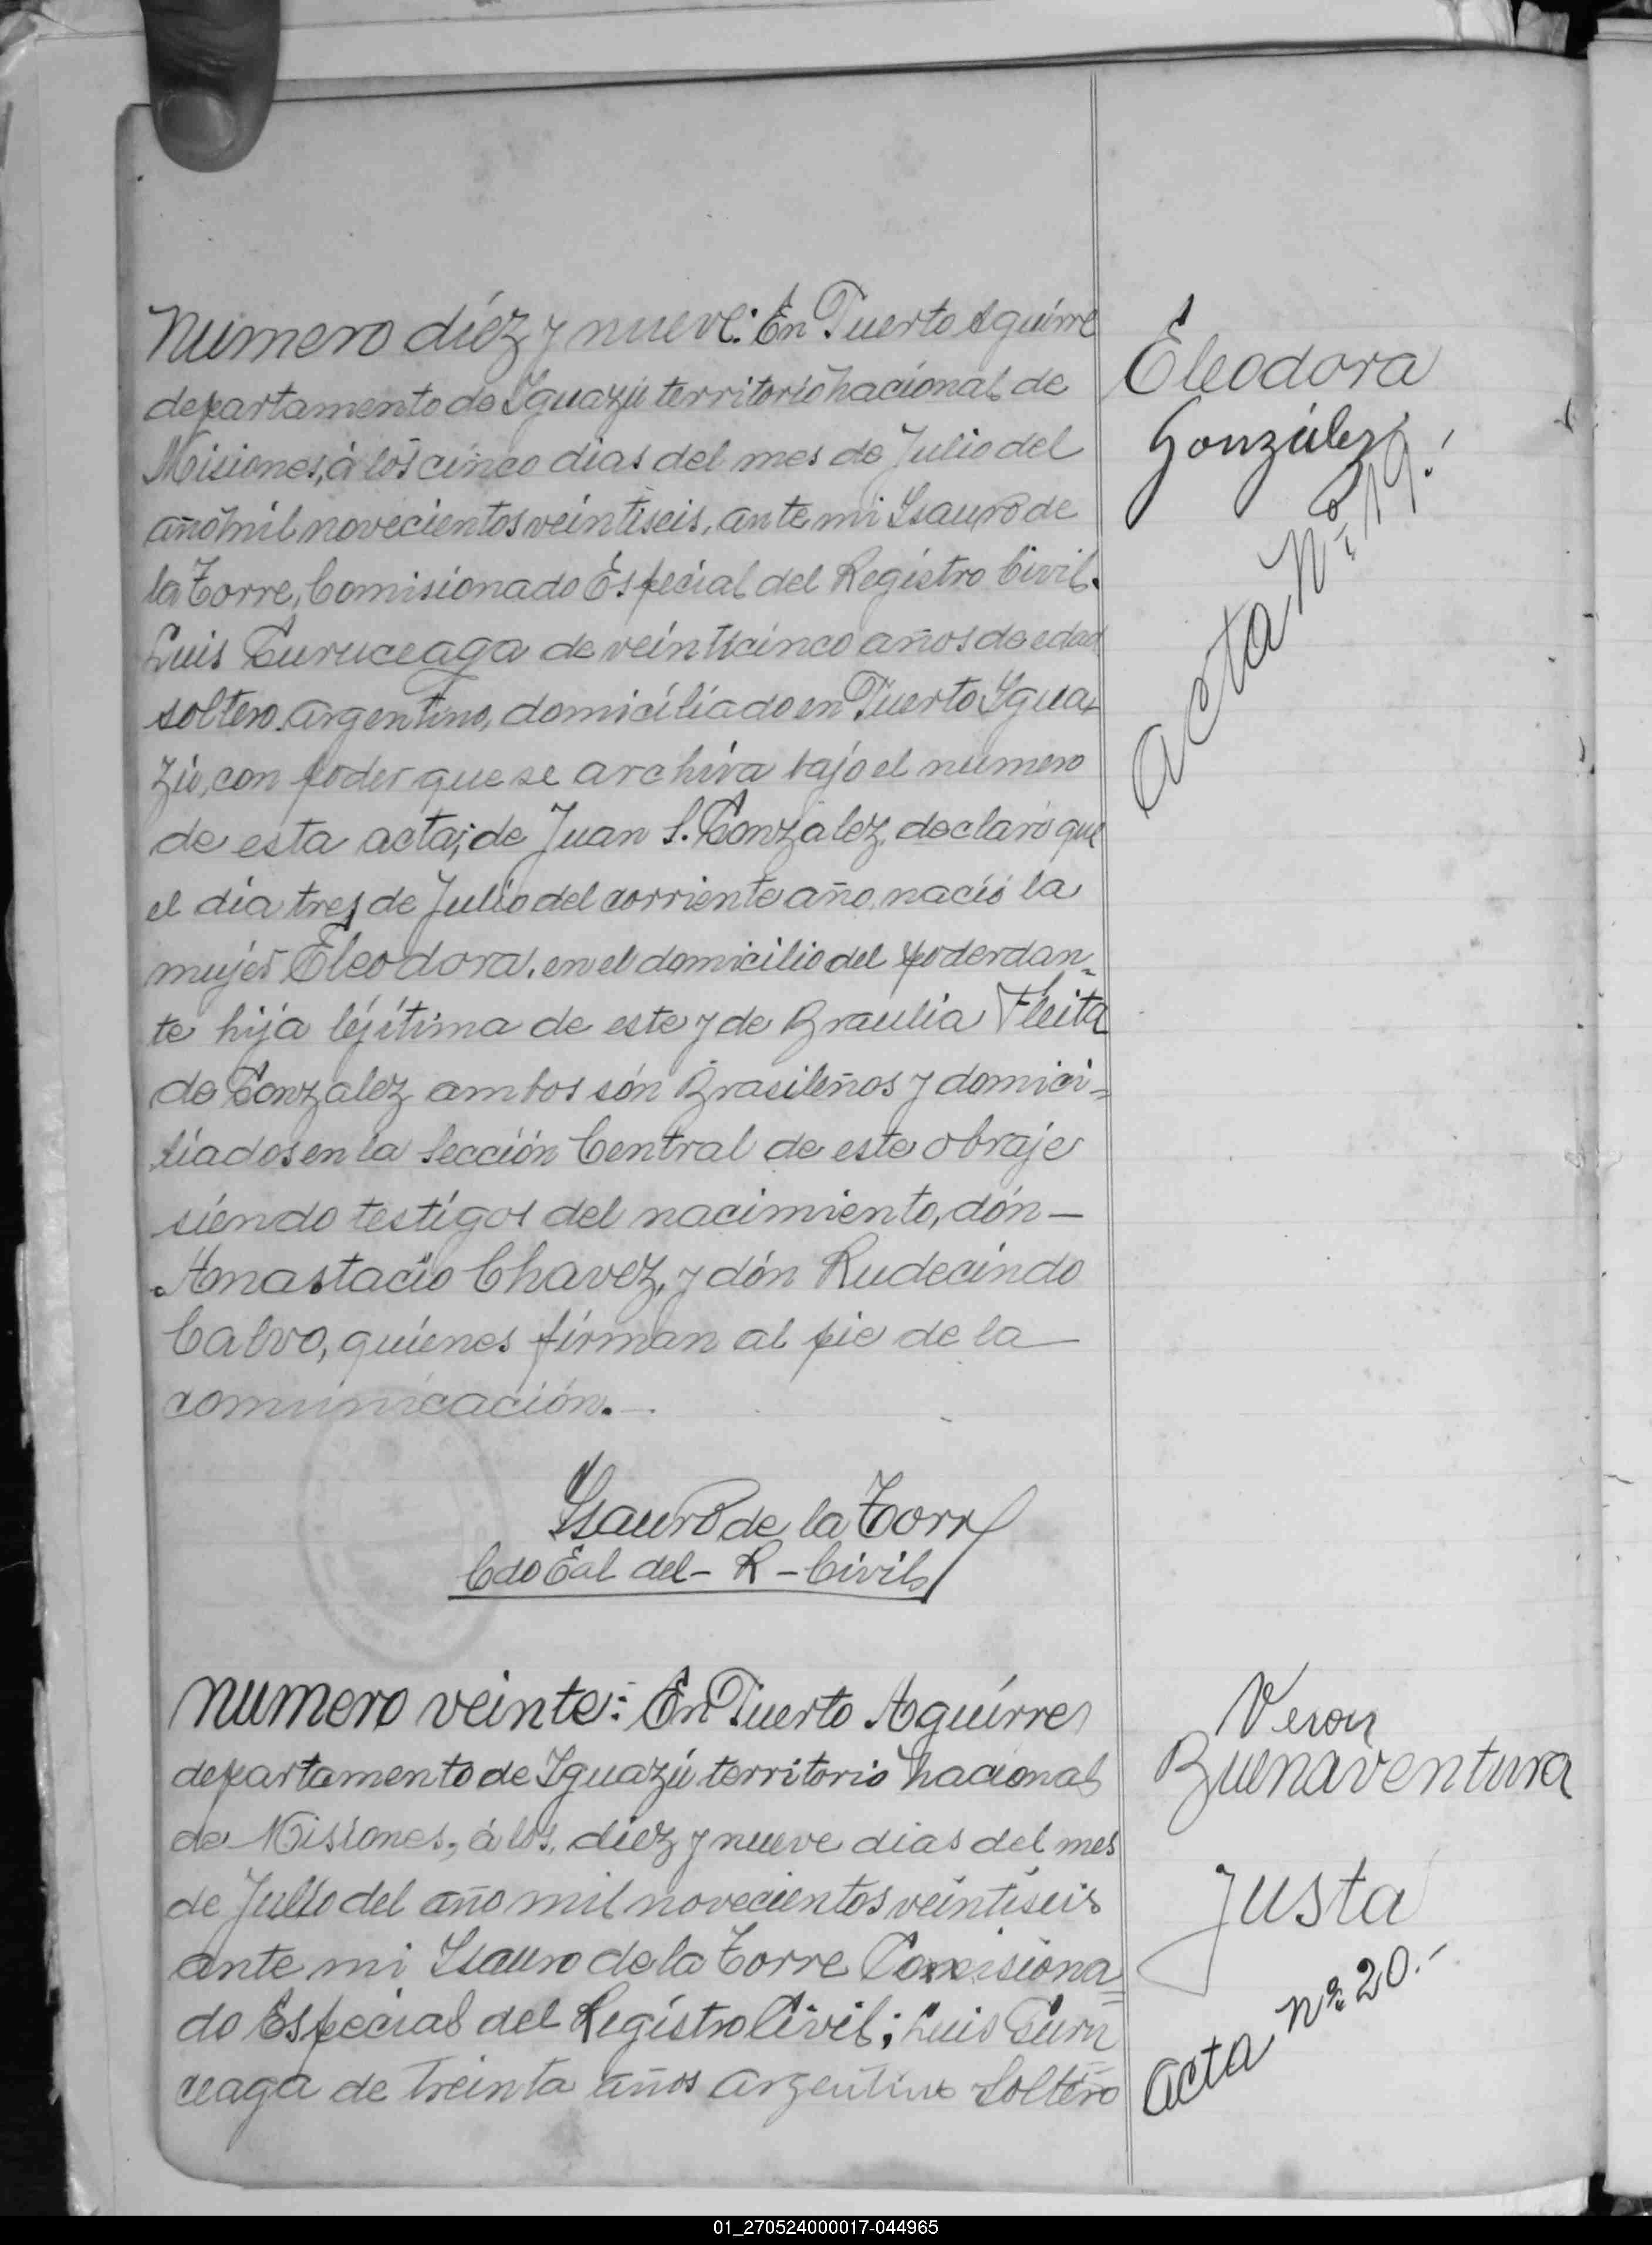 Numero diéz y nueve: En Puerto Aguirre
departamento de Yguazú territorio nacional de
Misiones, á los cinco dias del mes de Julio del
año mil novecientos veintiseis, ante mi Ysauro de
la Torre, Comisionado Especial del Registro Civil.
Luis Curuceaga de veinticinco años de edad
soltero argentino, domiciliado en Puerto Ygua-
zú, con poder que se archiva bajo el numero
de esta acta; de Juan S. Gonzalez, declaró que
el dia tres de Julio del corriente año, nació la
mujer Eleodora, en el domicilio del poderdan-
te hija léjitima de este y de Braulia Fleita
de Gonzalez ambos són Brasileños y domici=
liados en la Sección Central de este obraje
siendo testigos del nacimiento, dón —
Anastacio Chavez, y dón Rudecindo
Calvo, quienes firman al pie de la —
comunicación. —
Ysauro de la Torre
Cdo Eal del - R - Civil
Numero veinte: En Puerto Aguirre
departamento de Yguazú territorio nacional
de Misiones, á los, diez y nueve dias del mes
de Julio del año mil novecientos veintiseis
ante mi Ysauro de la Torre Comisiona=
do Especial del Registro Civil; Luis Curu=
ceaga de Treinta años Argentino Soltero
Eleodora
Gonzúlez
Acta Nº 19.-
Veron
Buenaventura
Justa
Acta nº 20.-
01_270524000017-044965